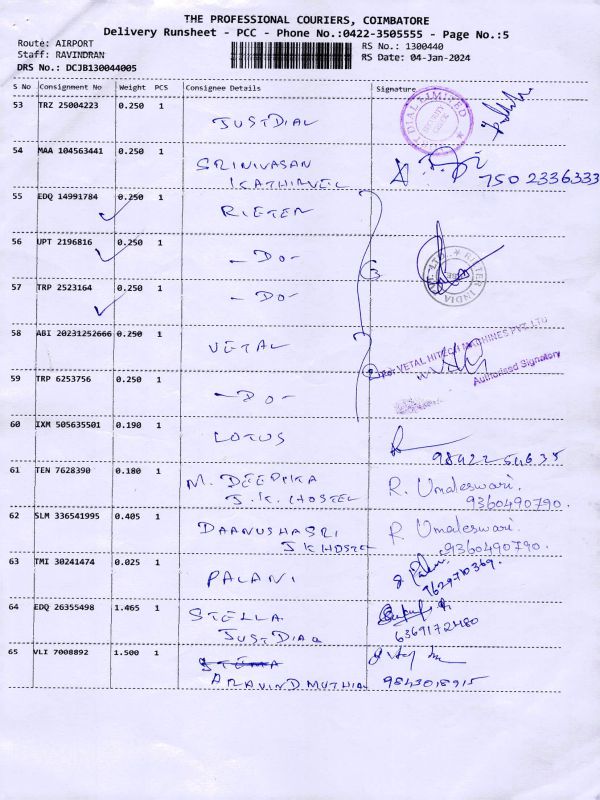 THE PROFESSIONAL COURIERS, COIMBATORE
Delivery Runsheet - PCC - Phone No.:0422-3505555 - Page No.:5
Route: AIRPORT
RS No.: 1300440
Staff: RAVINDRAN
RS Date: 04-Jan-2024
DRS No.: DCJB130044005
S No Consignment No Weight PCS Consignee Details Signature
53 TRZ 25004223 0.250 1
JUSTDIAL
DIAL LIMITED
54 MAA 104563441 0.250 1
SRINIVASAN
KATHIRVEL
750 2336333
55 EDQ 14991784 0.250 1
RIETER
56 UPT 2196816 0.250 1
- DO -
RIETER INDIA
57 TRP 2523164 0.250 1
- DO -
58 ABI 20231252666 0.250 1
VETAL
For VETAL HITECH MACHINES PVT LTD
Authorised Signatory
59 TRP 6253756 0.250 1
- DO -
60 IXM 505635501 0.190 1
LOTUS
98422 54635
61 TEN 7628390 0.180 1
M. DEEPIKA
J.K. HOSTEL
R. Umadeswari.
9360490790.
62 SLM 336541995 0.405 1
DAANUSHASRI
JK HOSTEL
R Umadeswari.
9360490790.
63 TMI 30241474 0.025 1
PALANI
9629710369.
64 EDQ 26355498 1.465 1
STELLA
JUSTDIAL
6369172480
65 VLI 7008892 1.500 1
STELLA
ARAVIND MUTHIAH
9843018915